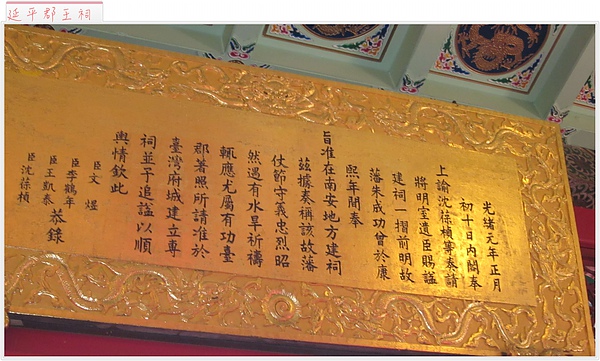 延平郡王祠
光緒元年正月
初十日內閣奉
上諭沈葆楨等奏請
將明室遺臣賜謚
建祠一摺前明故
藩朱成功曾於康
熙年間奉
旨准在南安地方建祠
茲據奏稱該故藩
仗節守義忠烈昭
然遇有水旱祈禱
輒應尤屬有功臺
郡著照所請准於
臺灣府城建立專
祠並予追謚以順
輿情欽此
臣文煜
臣李鶴年
臣王凱泰 恭錄
臣沈葆楨